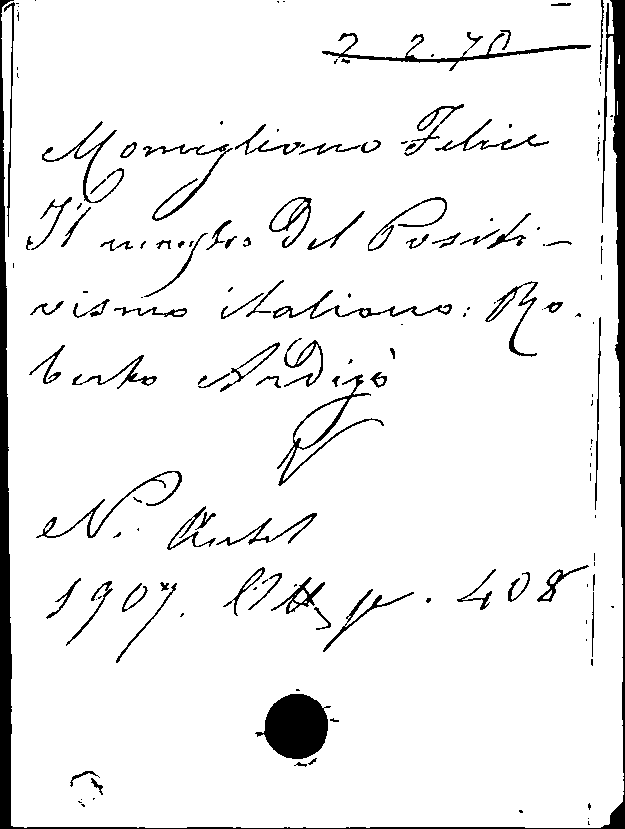 2 2.70
Momigliano Felice
Il maestro del Positi-
vismo italiano: Ro.
berto Ardigò
N. Antol
1907. Ott p. 408